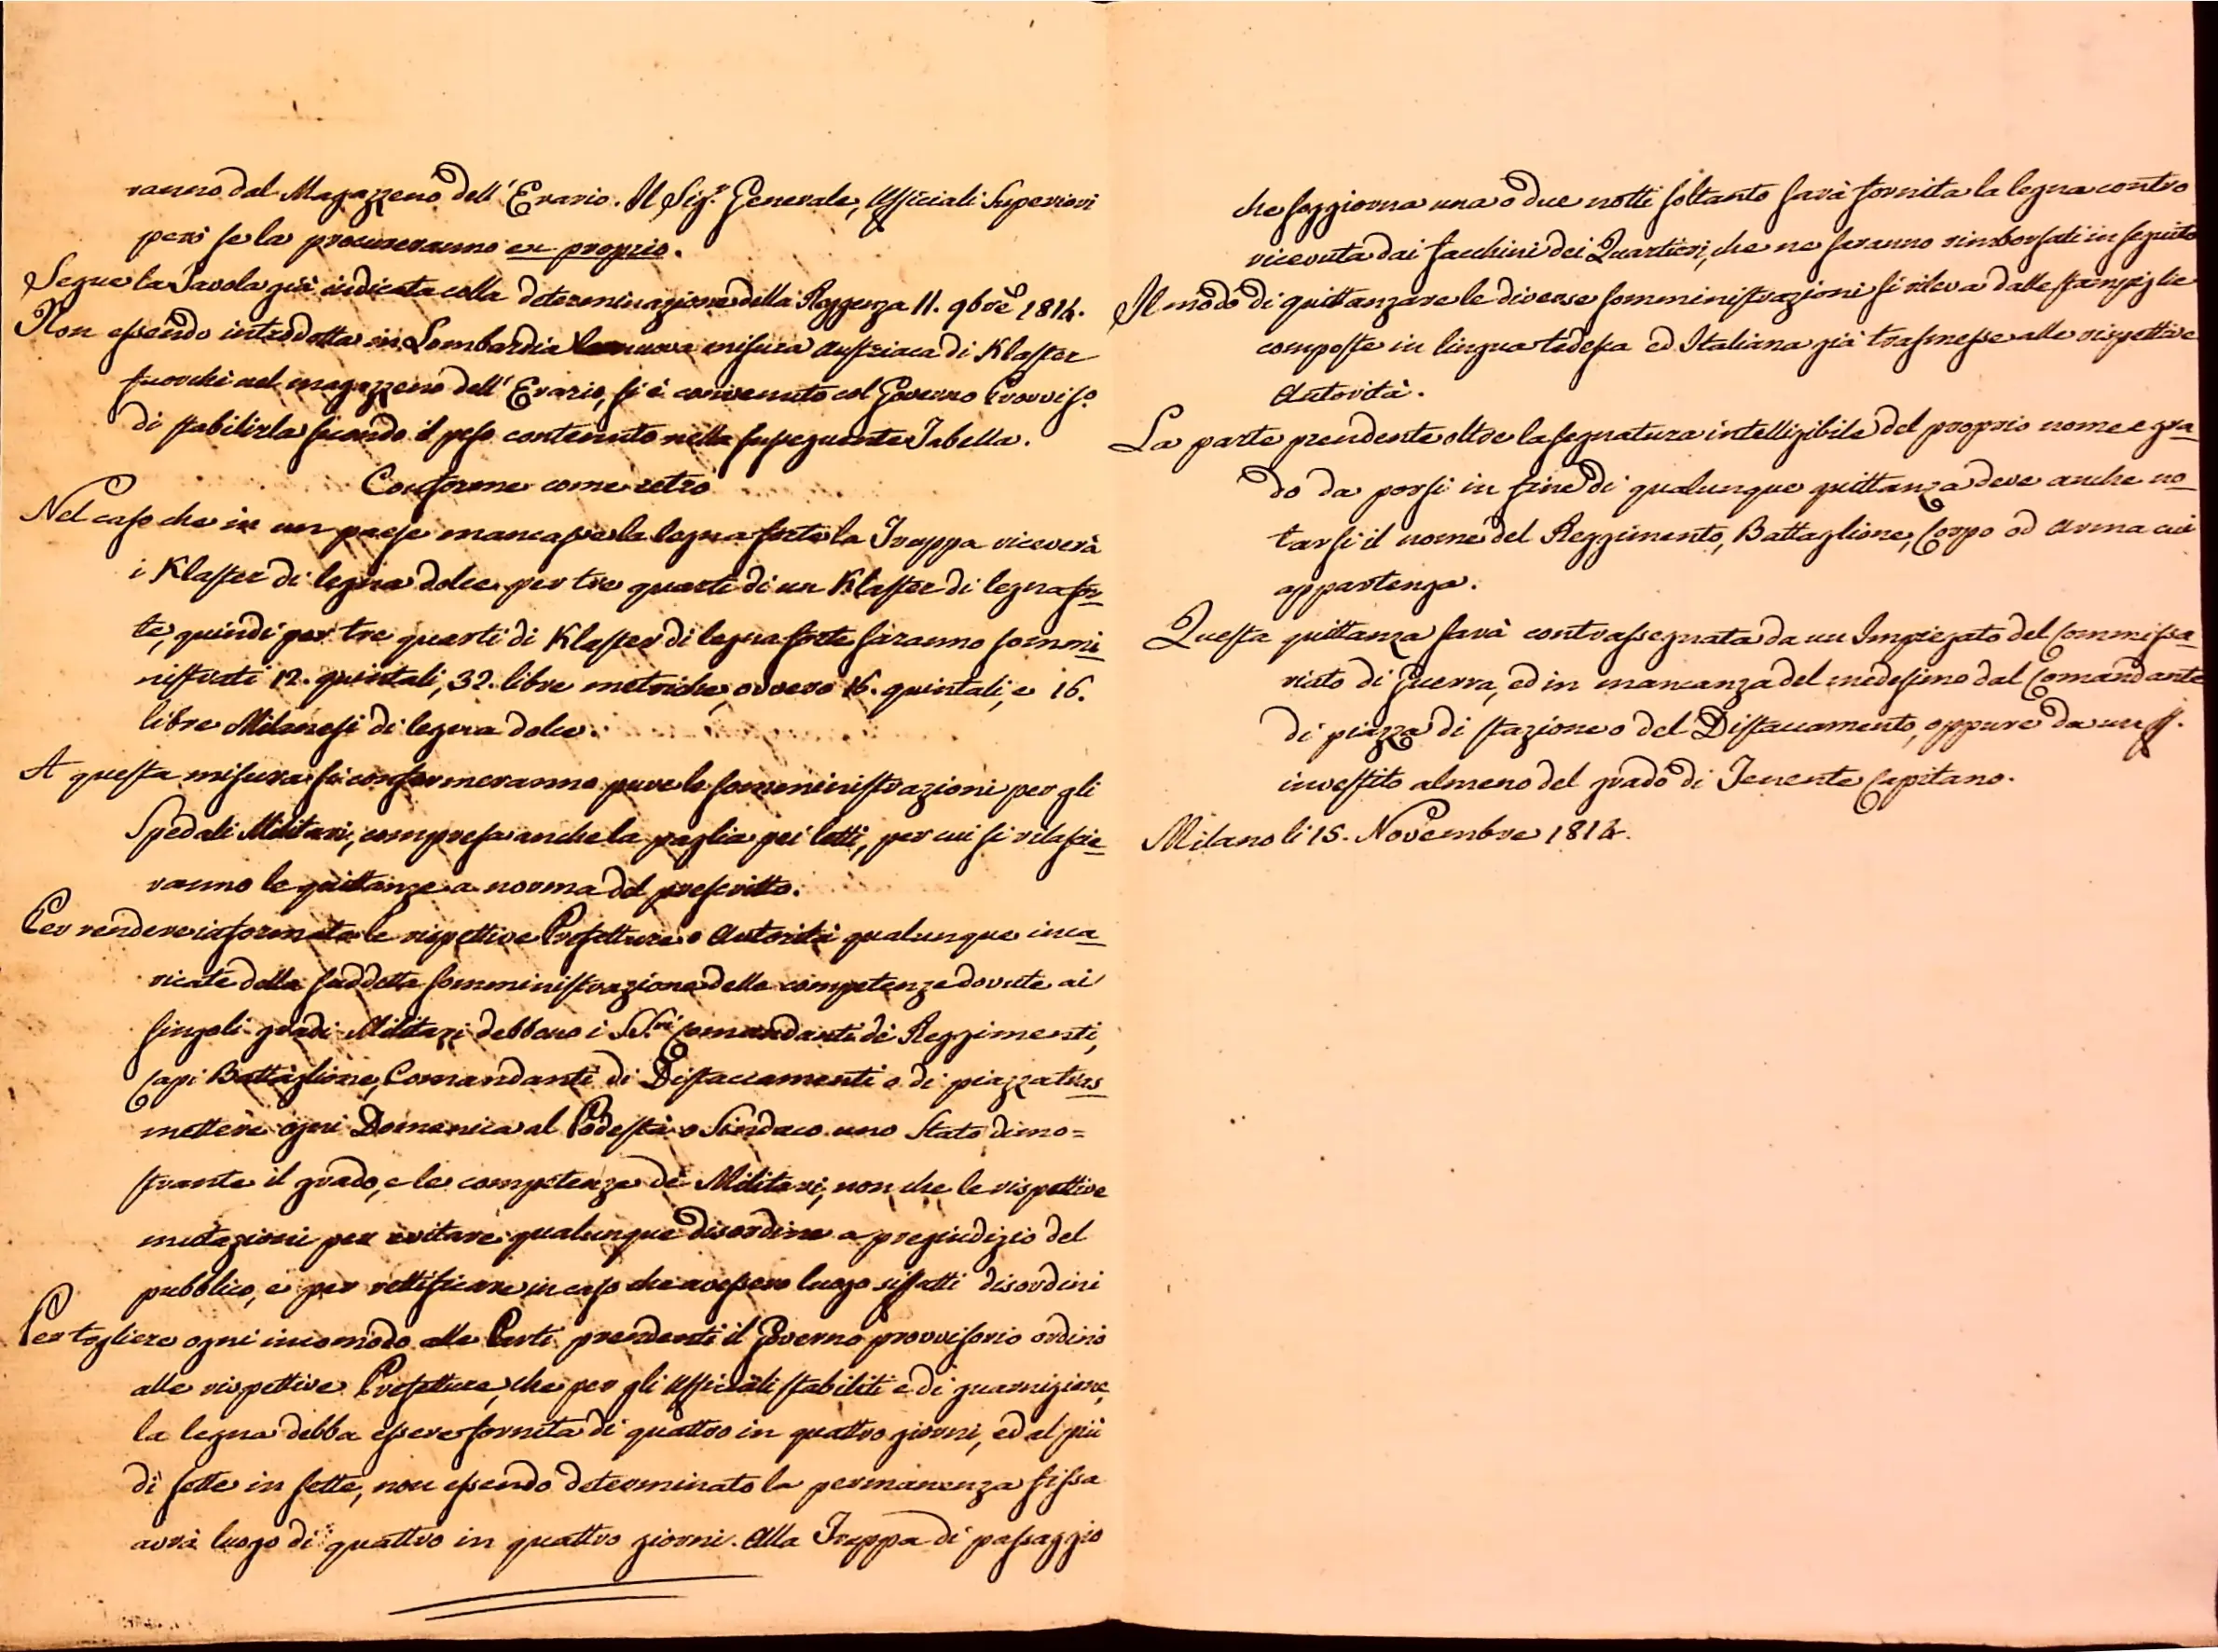 ranno dal Magazzeno dell'Erario. Il Sig.r Generale, Ufficiali Superiori
però se la procureranno ex proprio.
Segue la Tavola già indicata colla determinazione della Reggenza 11. 9bre 1814.
Non essendo introdotta in Lombardia la nuova misura austriaca di Klaster
fuorchè nel magazzeno dell'Erario, si è convenuto col Governo Provviso
di stabilirla secondo il peso contenuto nella susseguente Tabella.
Conforme come retro
Nel caso che in un paese mancasse la legna forte la Truppa riceverà
i Klaster di legna dolce per tre quarti di un Klaster di legna for-
te, quindi per tre quarti di Klaster di legna forte saranno sommi-
nistrati 12. quintali, 32. libre metriche, ovvero 16. quintali, e 16.
libre Milanesi di legna dolce.
A questa misura si conformeranno pure le somministrazioni per gli
Spedali Militari, compresa anche la paglia pei letti, per cui si rilascie-
ranno le quittanze a norma del prescritto.
Per rendere informate le rispettive Prefetture o Autorità qualunque inca-
ricate della suddetta somministrazione delle competenze dovute ai
singoli gradi Militari debbono i SS.ri Comandanti dè Reggimenti,
Capi Battaglione, Comandanti di Distaccamenti o di piazza tras-
mettere ogni Domenica al Podestà o Sindaco uno Stato dimo=
strante il grado, e le competenze dè Militari, non che le rispettive
mutazioni per evitare qualunque disordine a pregiudizio del
pubblico, e per rettificare in caso che avessero luogo siffatti disordini
Per togliere ogni incomodo alle Parti prendenti il Governo provvisorio ordinò
alle rispettive Prefetture, che per gli Ufficiali stabiliti e di guarnizione,
la legna debba essere fornita di quattro in quattro giorni, ed al più
di sette in sette, non essendo determinato la permanenza fissa
avrà luogo di quattro in quattro giorni. Alla Truppa di passaggio
che soggiorna una o due notti soltanto sarà fornita la legna contro
ricevuta dai facchini dei Quartieri, che ne saranno rimborsati in seguito
Il modo di quittanzare le diverse somministrazioni si rileva dalle stampiglie
composte in lingua tedesca ed Italiana già trasmesse alle rispettive
Autorità.
La parte prendente oltre la segnatura intelligibile del proprio nome e gra-
do da porsi in fine di qualunque quittanza deve anche no-
tarsi il nome del Reggimento, Battaglione, Corpo od Arma cui
appartenga.
Questa quittanza sarà contrassegnata da un Impiegato del Commissa-
riato di Guerra, ed in mancanza del medesimo dal Comandante
di piazza di stazione o del Distaccamento, oppure da un
investito almeno del grado di Tenente Capitano.
Milano li 15. Novembre 1814.